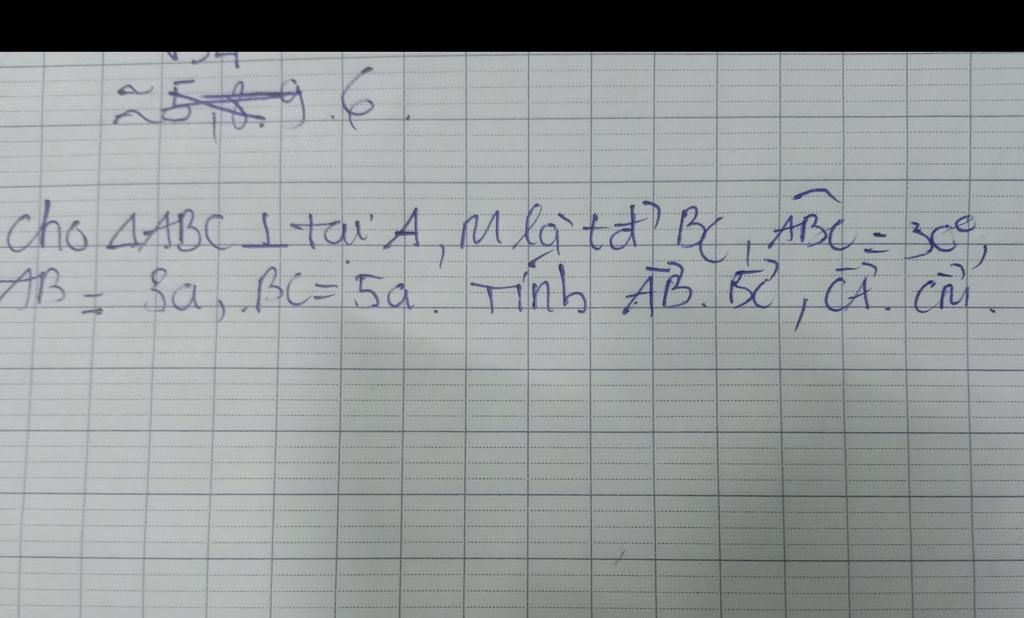 ≈ 5,8.9.6.
Cho ΔABC ⊥ tại A, M là tđ BC, ABC = 30°,
AB = 3a, BC = 5a. Tính AB. BC, CA. CM.